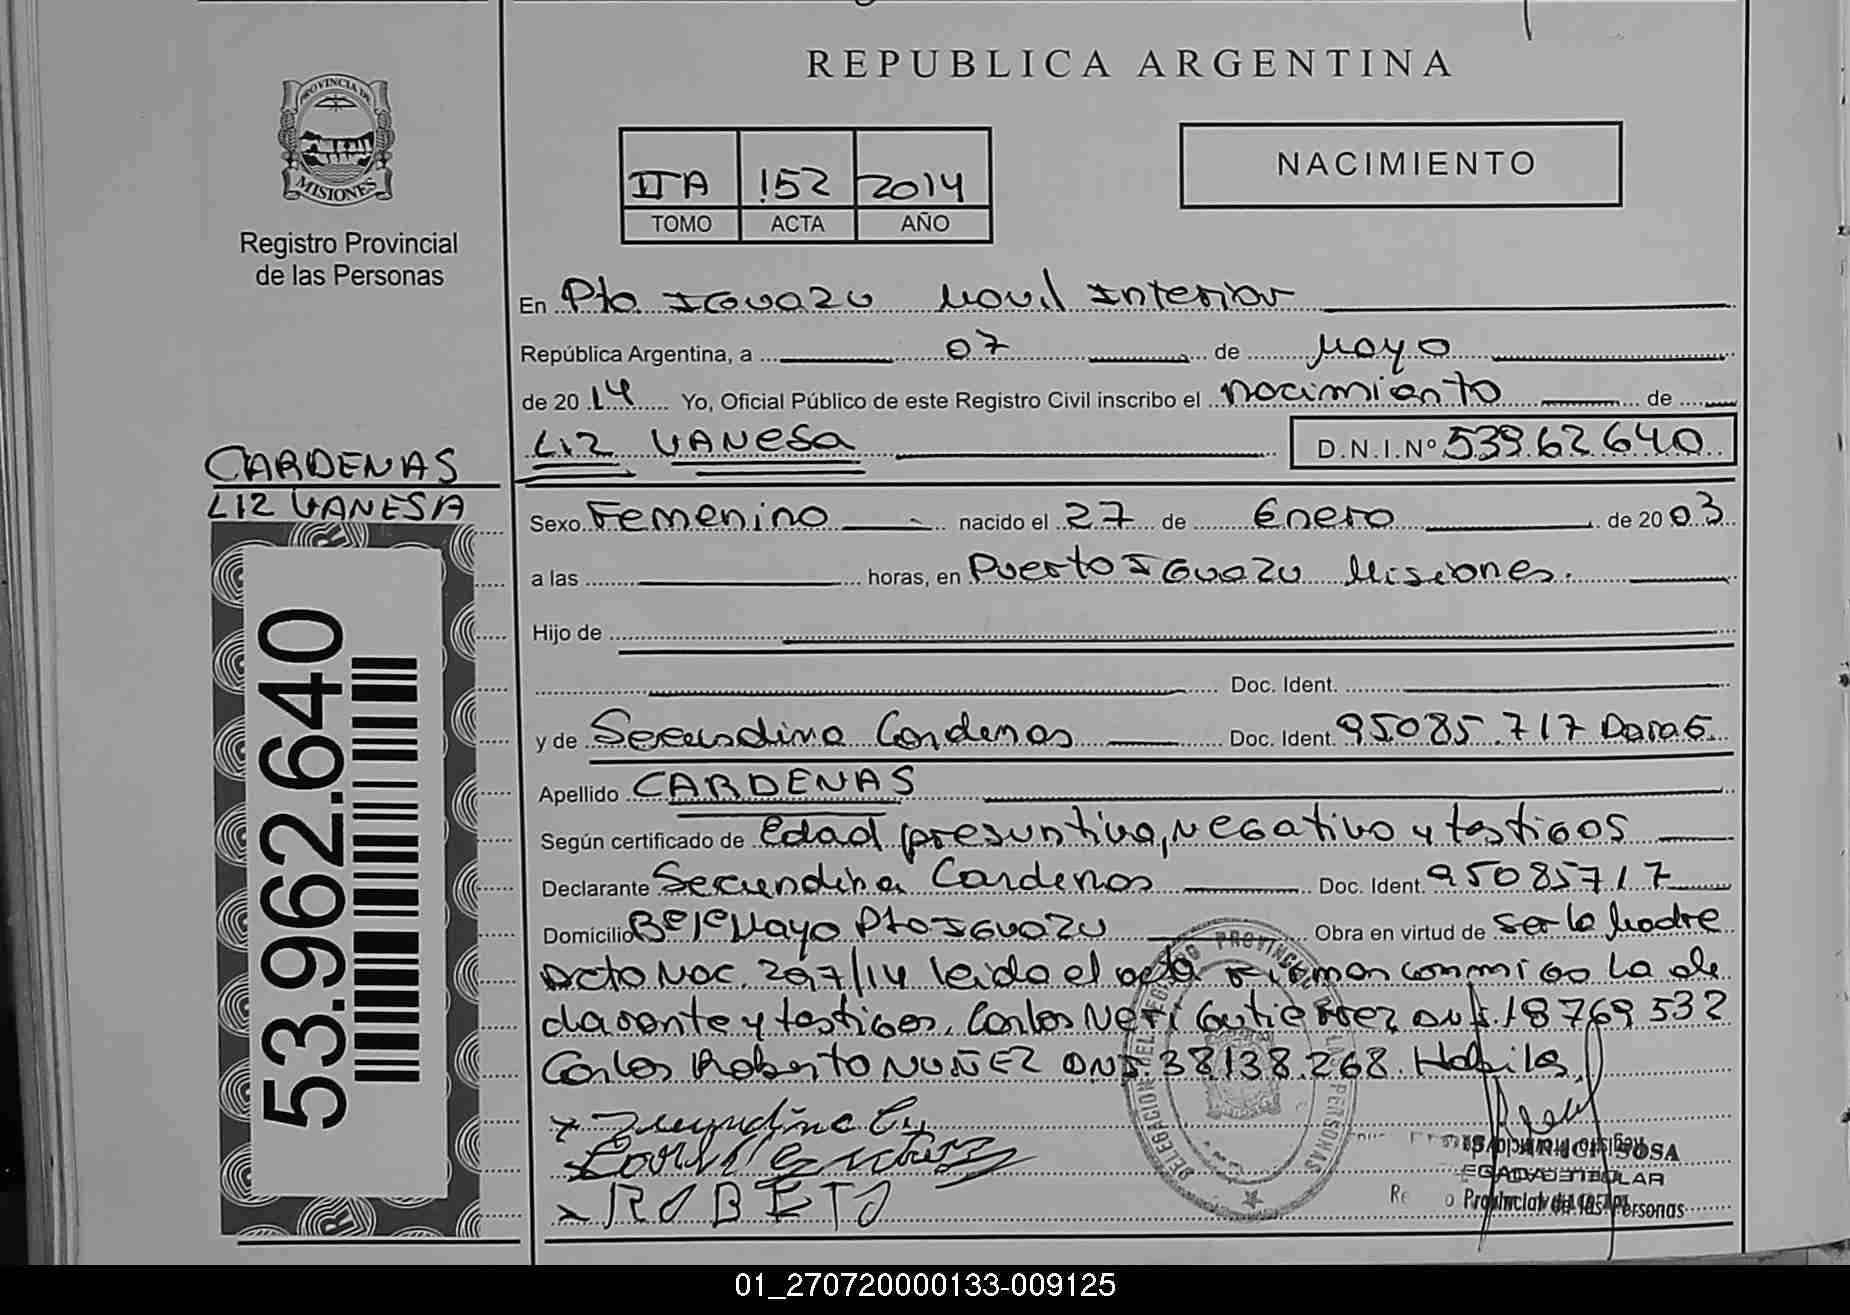 REPUBLICA ARGENTINA
PROVINCIA DE
MISIONES
Registro Provincial
de las Personas
IIA 152 2014
TOMO ACTA AÑO
NACIMIENTO
En Pto. IGUAZU Movil Interior
República Argentina, a 07 de Mayo
de 2014 Yo, Oficial Público de este Registro Civil inscribo el nacimiento de
LIZ VANESA D.N.I.Nº 53962640
CARDENAS
LIZ VANESA
53.962.640
Sexo Femenino nacido el 27 de Enero de 2003
a las horas, en Puerto IGUAZU Misiones.
Hijo de
Doc. Ident.
y de Secundina Cardenas Doc. Ident. 95.085.717
Apellido CARDENAS
Según certificado de edad presuntiva, negativo y testigos
Declarante Secundina Cardenas Doc. Ident. 95085717
Domicilio Bº 1º Mayo Pto IGUAZU Obra en virtud de ser la Madre
Acta Nac. 297/14 leida el acta firman conmigo la de
clarante y testigos, Carlos Neri Gutierrez DNI. 18769532
Carlos Roberto NUÑEZ DNI 38.138.268. Habiles.
ROBETO
DELEGACION PROVINCIAL DE LAS PERSONAS
SOSA
TITULAR
Provincial de las Personas
01_270720000133-009125